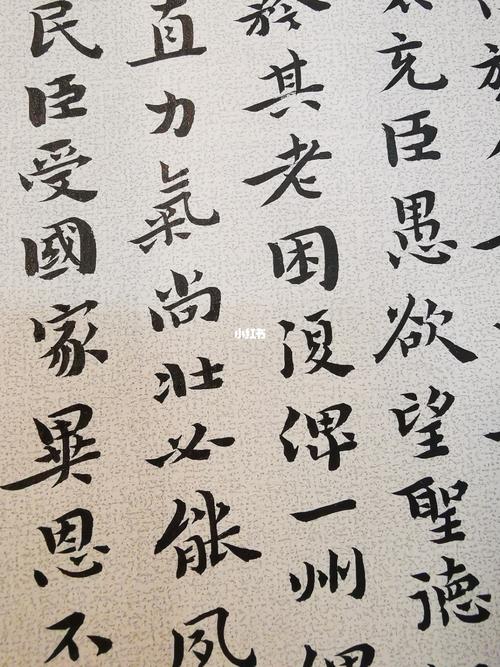 充臣愚欲望聖德
矜其老困復俾一州俾
直力氣尚壯必能夙
民臣受國家異恩不
小红书